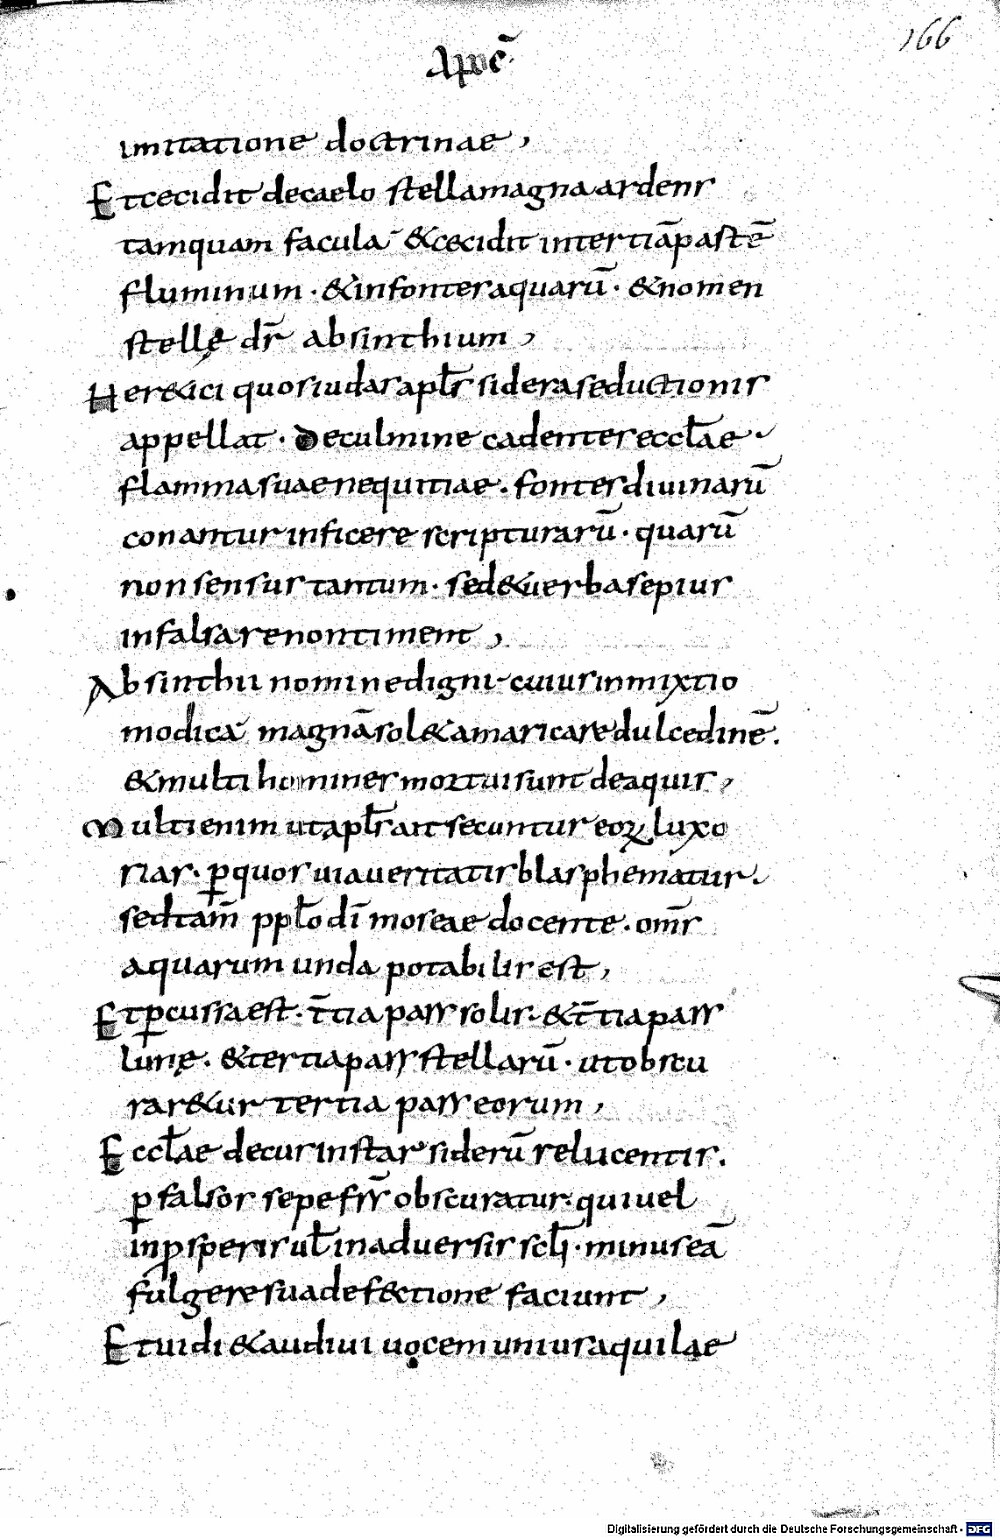 166
Apoc̄
imitatione doctrinae,
Et cecidit de caelo stella magna ardens
tamquam facula & cecidit in tertiā partē
fluminum · & in fontes aquarū · & nomen
stellę dr̄ absinthium,
Her&ici quos iudas apl̄s sidera seductionis
appellat · De culmine cadentes eccl̄ae
flamma suae nequitiae · fontes diuinarū
conantur inficere scripturarū · quarū
non sensus tantum · sed & uerba sepius
infalsare non timent,
Absinthii nomine digni cuius inmixtio
modica magnā sol& amaricare dulcedinē.
& multi homines mortui sunt de aquis,
Multi enim ut apl̄s ait secuntur eoꝝ luxo
rias · ꝑ quos uia ueritatis blasphematur.
sed tam̄ ppl̄o dī moseae docente · om̄s
aquarum unda potabilis est,
Et ꝑcussa est · t̄tia pars solis · & t̄tia pars
lunę · & tertia pars stellarū · ut obscu
rar&ur tertia pars eorum,
Eccl̄ae decus instar siderū relucentis.
ꝑ falsos sepe fr̄s obscuratur · qui uel
in ꝓsperis ul̄ in aduersis scl̄i · minus eā
fulgere sua def&ctione faciunt,
Et uidi & audiui uocem unius aquilae
Digitalisierung gefördert durch die Deutsche Forschungsgemeinschaft - DFG